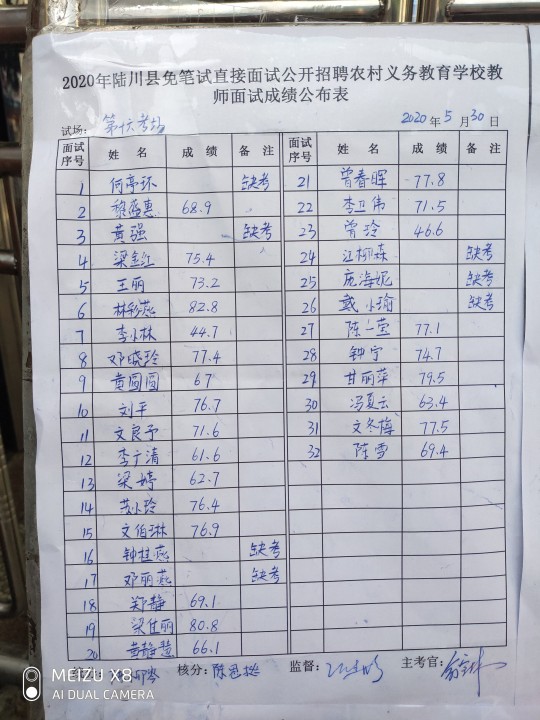 2020年陆川县免笔试直接面试公开招聘农村义务教育学校教
师面试成绩公布表
试场：第十六考场 2020年5月30日
面试序号 姓名 成绩 备注 面试序号 姓名 成绩 备注
1 何亭环 缺考 21 曾春晖 77.8
2 黎盛惠 68.9 22 李卫伟 71.5
3 黄强 缺考 23 曾玲 46.6
4 梁金红 75.4 24 江柳森 缺考
5 王丽 73.2 25 庞海妮 缺考
6 林彩燕 82.8 26 戴小瑜 缺考
7 李小林 44.7 27 陈一莹 77.1
8 邓晓玲 77.4 28 钟宁 74.7
9 黄圆圆 67 29 甘丽萍 79.5
10 刘平 76.7 30 冯夏云 63.4
11 文良予 71.6 31 文冬梅 77.5
12 李广清 61.6 32 陈雪 69.4
13 梁婷 62.7
14 芸小玲 76.4
15 文伯琳 76.9
16 钟桂燕 缺考
17 邓丽燕 缺考
18 郑静 69.1
19 梁仕丽 80.8
20 黄静慧 66.1
核分： 监督： 主考官：
MEIZU X8
AI DUAL CAMERA